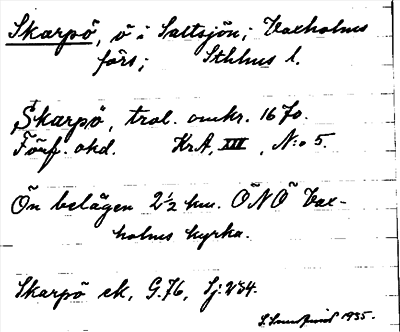 Skarpö, ö i Saltsjön; Vaxholms
förs; Sthlms l.
Skarpö, trol. omkr. 1670.
Förf. okd. KrA, XIII, N:o 5.
Ön belägen 2½ km. ÖNÖ Vax-
holms kyrka.
Skarpö ek, G.76, Sj:234.
1935.